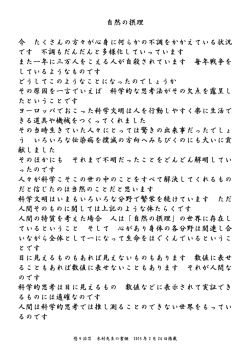 自然の摂理
今　たくさんの方々が心身に何らかの不調をかかえている状況
です　不調もだんだんと多様化していっています
また一年に二万人をこえる人が自殺されています　毎年戦争を
しているようなものです
どうしてこのようなことになったのでしょうか
その原因を一言でいえば　科学的な思考法がその欠点を露呈し
たということです
ヨーロッパでおこった科学文明は人を行動しやすく楽に生活で
きる道具や機械をつくってくれました
その当時生きていた人々にとっては驚きの出来事だったでしょ
う　いろいろな伝染病を撲滅の方向へみちびくのにも大いに貢
献しました
そのほかにも　それまで不明だったことをどんどん解明してい
ったのです
人々が科学こそこの世の中のことをすべて解決してくれるもの
だと信じたのは当然のことだと思います
科学文明はいまもいろいろな分野で繁栄を続けています　ただ
人間そのものに関しては上記のような体たらくです
人間の特質を考えた場合　人は「自然の摂理」の世界に存在し
ているということ　そして　心があり身体の各分野は関連し合
いながら全体として一になって生命をはぐくんでいるというこ
とです
目に見えるものもあれば見えないものもあります　数値に表せ
ることもあれば数値に表せないこともあります　それが人間な
のです
科学的思考は目に見えるもの　数値などに表示されて実証でき
るものには適確なのです
人間は科学的思考では推し測ることのできない世界をもってい
るのです
悠々活芸　木村先生の書棚　2015年2月24日掲載